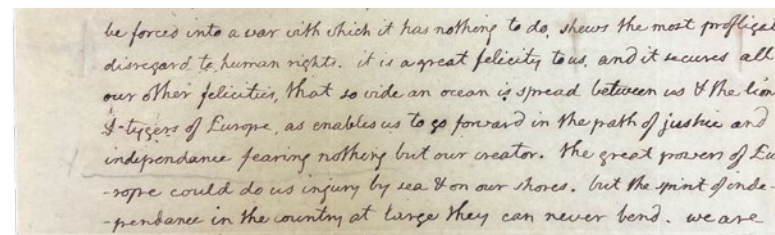 be forced into a war with which it has nothing to do, shews the most profligat
disregard to human rights. it is a great felicity to us, and it secures all
our other felicities, that so wide an ocean is spread between us & the lion
& tygers of Europe, as enables us to go forward in the path of justice and
independance fearing nothing but our creator. the great powers of Eu
-rope could do us injury by sea & on our shores. but the spirit of inde-
-pendance in the country at large they can never bend. we are